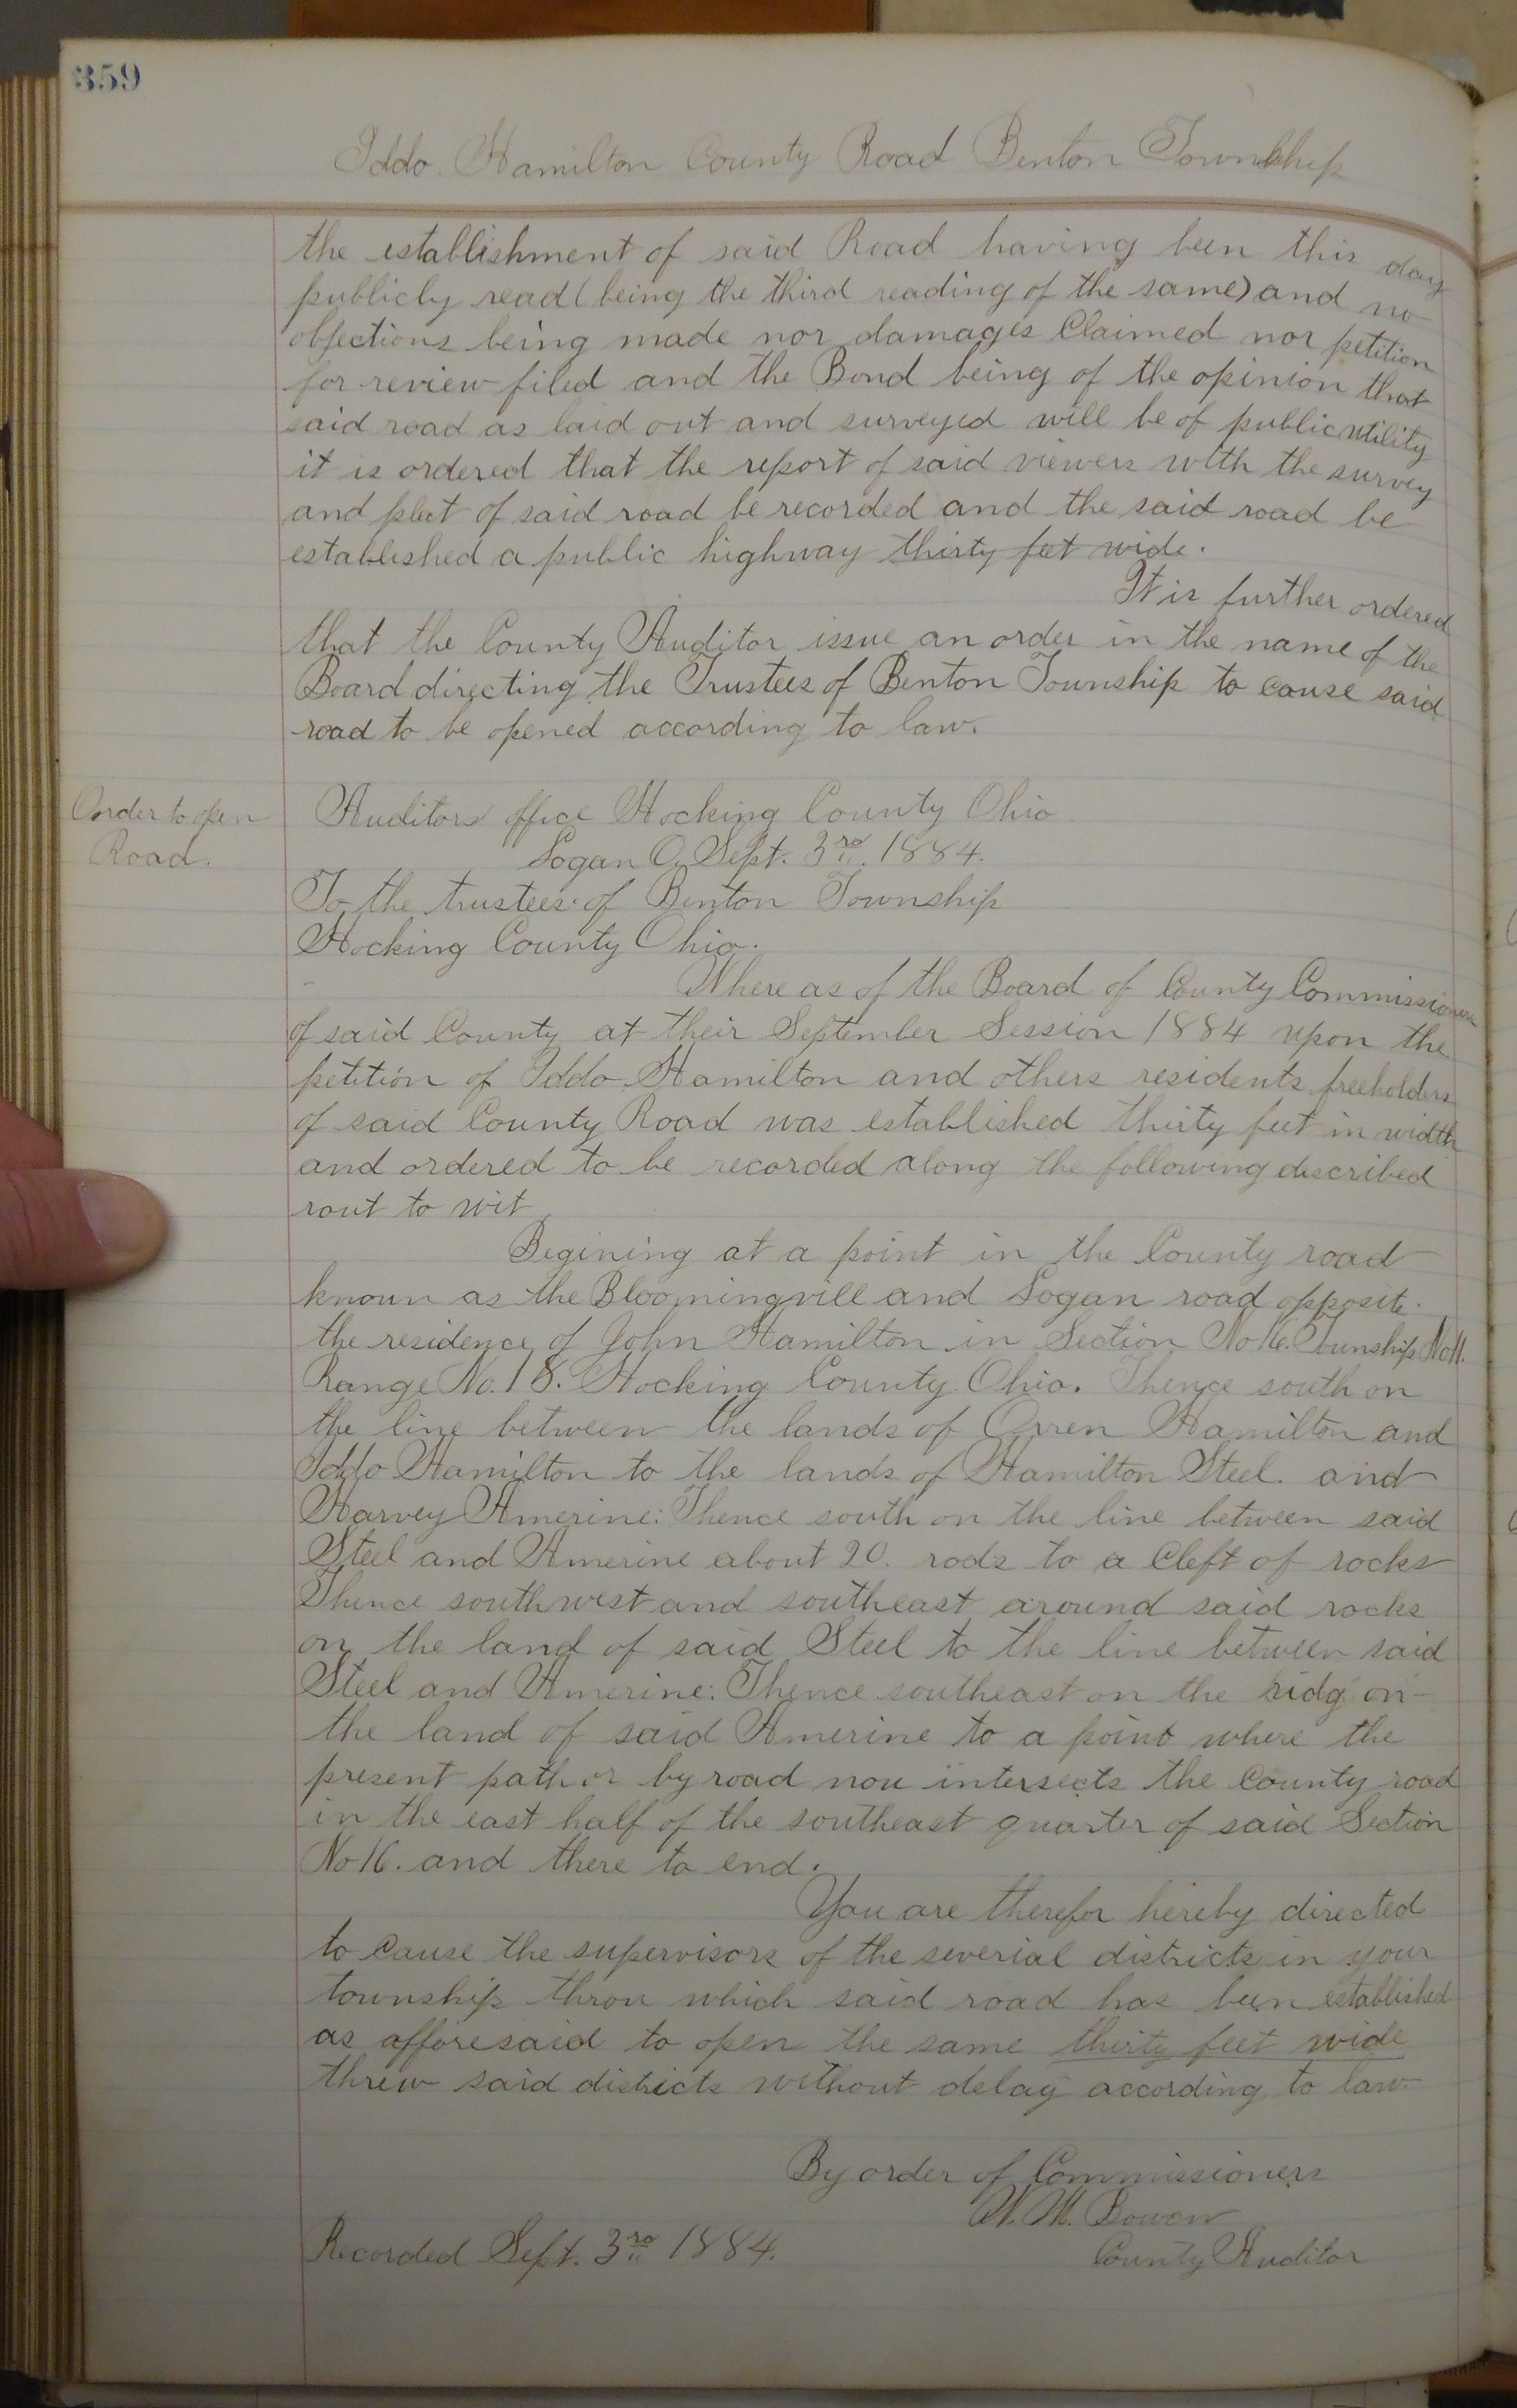 359
Iddo Hamilton County Road Benton Township
the establishment of said Road having been this day
publicly read (being the third reading of the same) and no
objections being made nor damages Claimed nor petition
for review filed and the Bond being of the opinion that
said road as laid out and surveyed will be of public utility
it is ordered that the report of said viewers with the survey
and plat of said road be recorded and the said road be
established a public highway thirty feet wide.
It is further ordered
that the County Auditor issue an order in the name of the
Board directing the Trustees of Benton Township to cause said
road to be opened according to law.
Order to open
Road.
Auditors office Hocking County Ohio
Logan O. Sept. 3rd. 1884.
To the trustees of Benton Township
Hocking County Ohio.
Where as of the Board of County Commissioners
of said County at their September Session 1884 upon the
petition of Iddo Hamilton and others residents freeholders
of said County Road was established thirty feet in width
and ordered to be recorded along the following described
rout to wit
Begining at a point in the County road
known as the Bloomingvill and Logan road opposite
the residence of John Hamilton in Section No 16. Township No 11.
Range No. 18. Hocking County Ohio. Thence south on
the line between the lands of Orren Hamilton and
Iddo Hamilton to the lands of Hamilton Steel. and
Harvey Amerine: Thence south on the line between said
Steel and Amerine about 20. rods to a Cleft of rocks
Thence southwest and southeast around said rocks
on the land of said Steel to the line between said
Steel and Amerine: Thence southeast on the ridg on
the land of said Amerine to a point where the
present path or by road now intersects the County road
in the east half of the southeast quarter of said Section
No 16. and there to end.
You are therefor hereby directed
to Cause the supervisors of the severial districts in your
township throu which said road has been established
as afforesaid to open the same thirty feet wide
threw said districts without delay according to law
By order of Commissioners
W. M. Bowen
Recorded Sept. 3rd 1884.
County Auditor